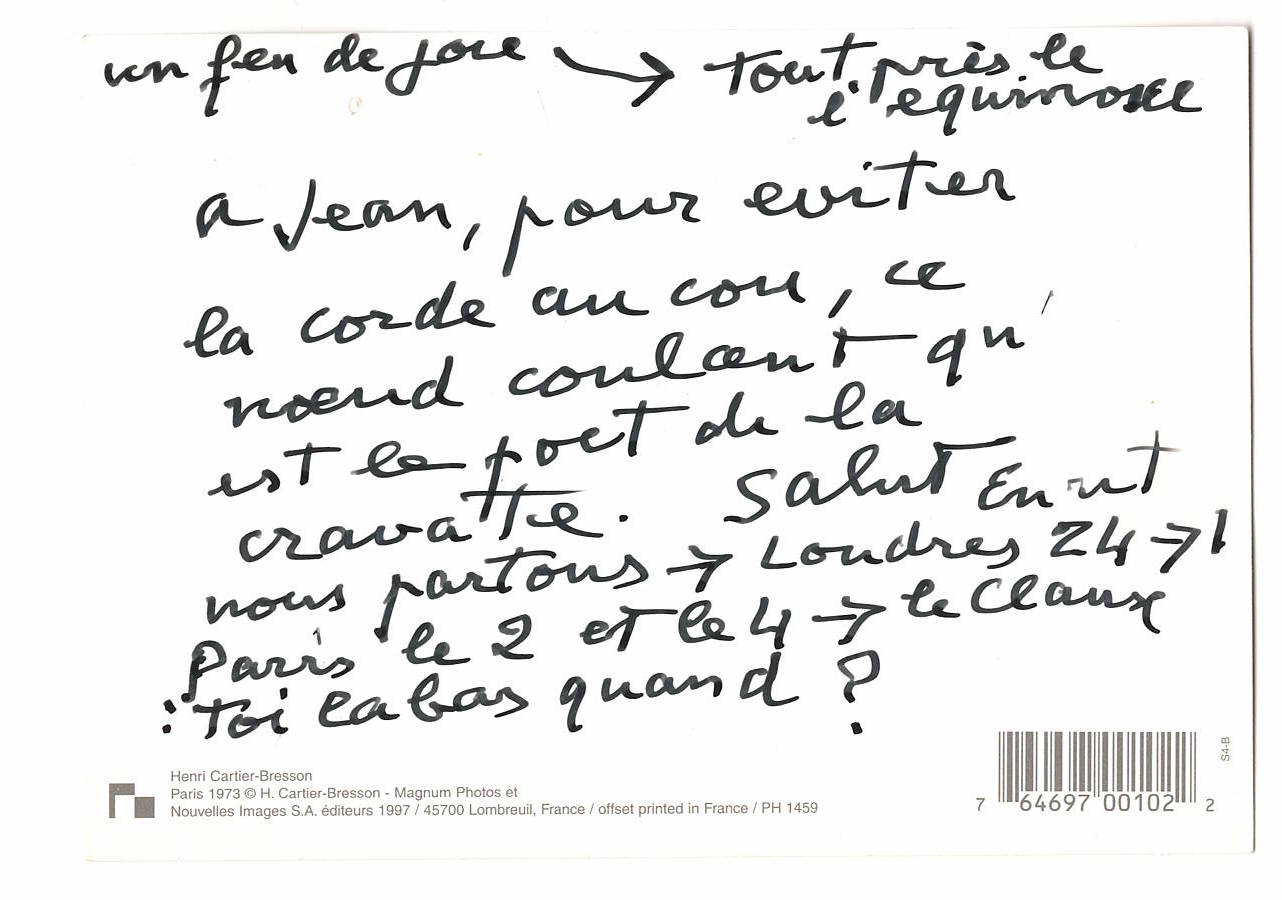 un feu de joie → tout près le
l'equinoxe
a Jean, pour eviter
la corde au cou, ce
nœud coulant qu'
est le poct de la
cravatte. Salut
nous partons → Londres 24 → 1
Paris le 2 et le 4 → le Claux
: Toi la bas quand ?
Henri Cartier-Bresson
Paris 1973 © H. Cartier-Bresson - Magnum Photos et
Nouvelles Images S.A. éditeurs 1997 / 45700 Lombreuil, France / offset printed in France / PH 1459
7 64697 00102 2
S4-B